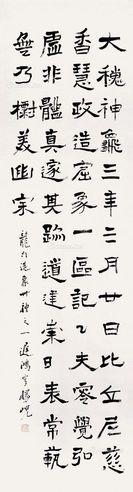 大魏神龜三年三月廿日比丘尼慈
香慧政造窟象一區記之夫零覺弘
虛非體真邃其跡道建崇日表常範
無乃標美幽宗
龍門造象廿種之一